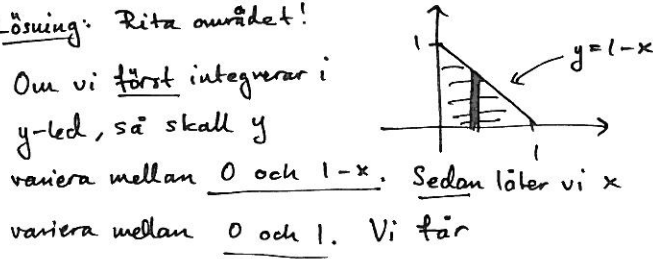 Lösning: Rita området!
1
y=1-x
Om vi först integrerar i
y-led, så skall y
1
variera mellan 0 och 1-x. Sedan låter vi x
variera mellan 0 och 1. Vi får